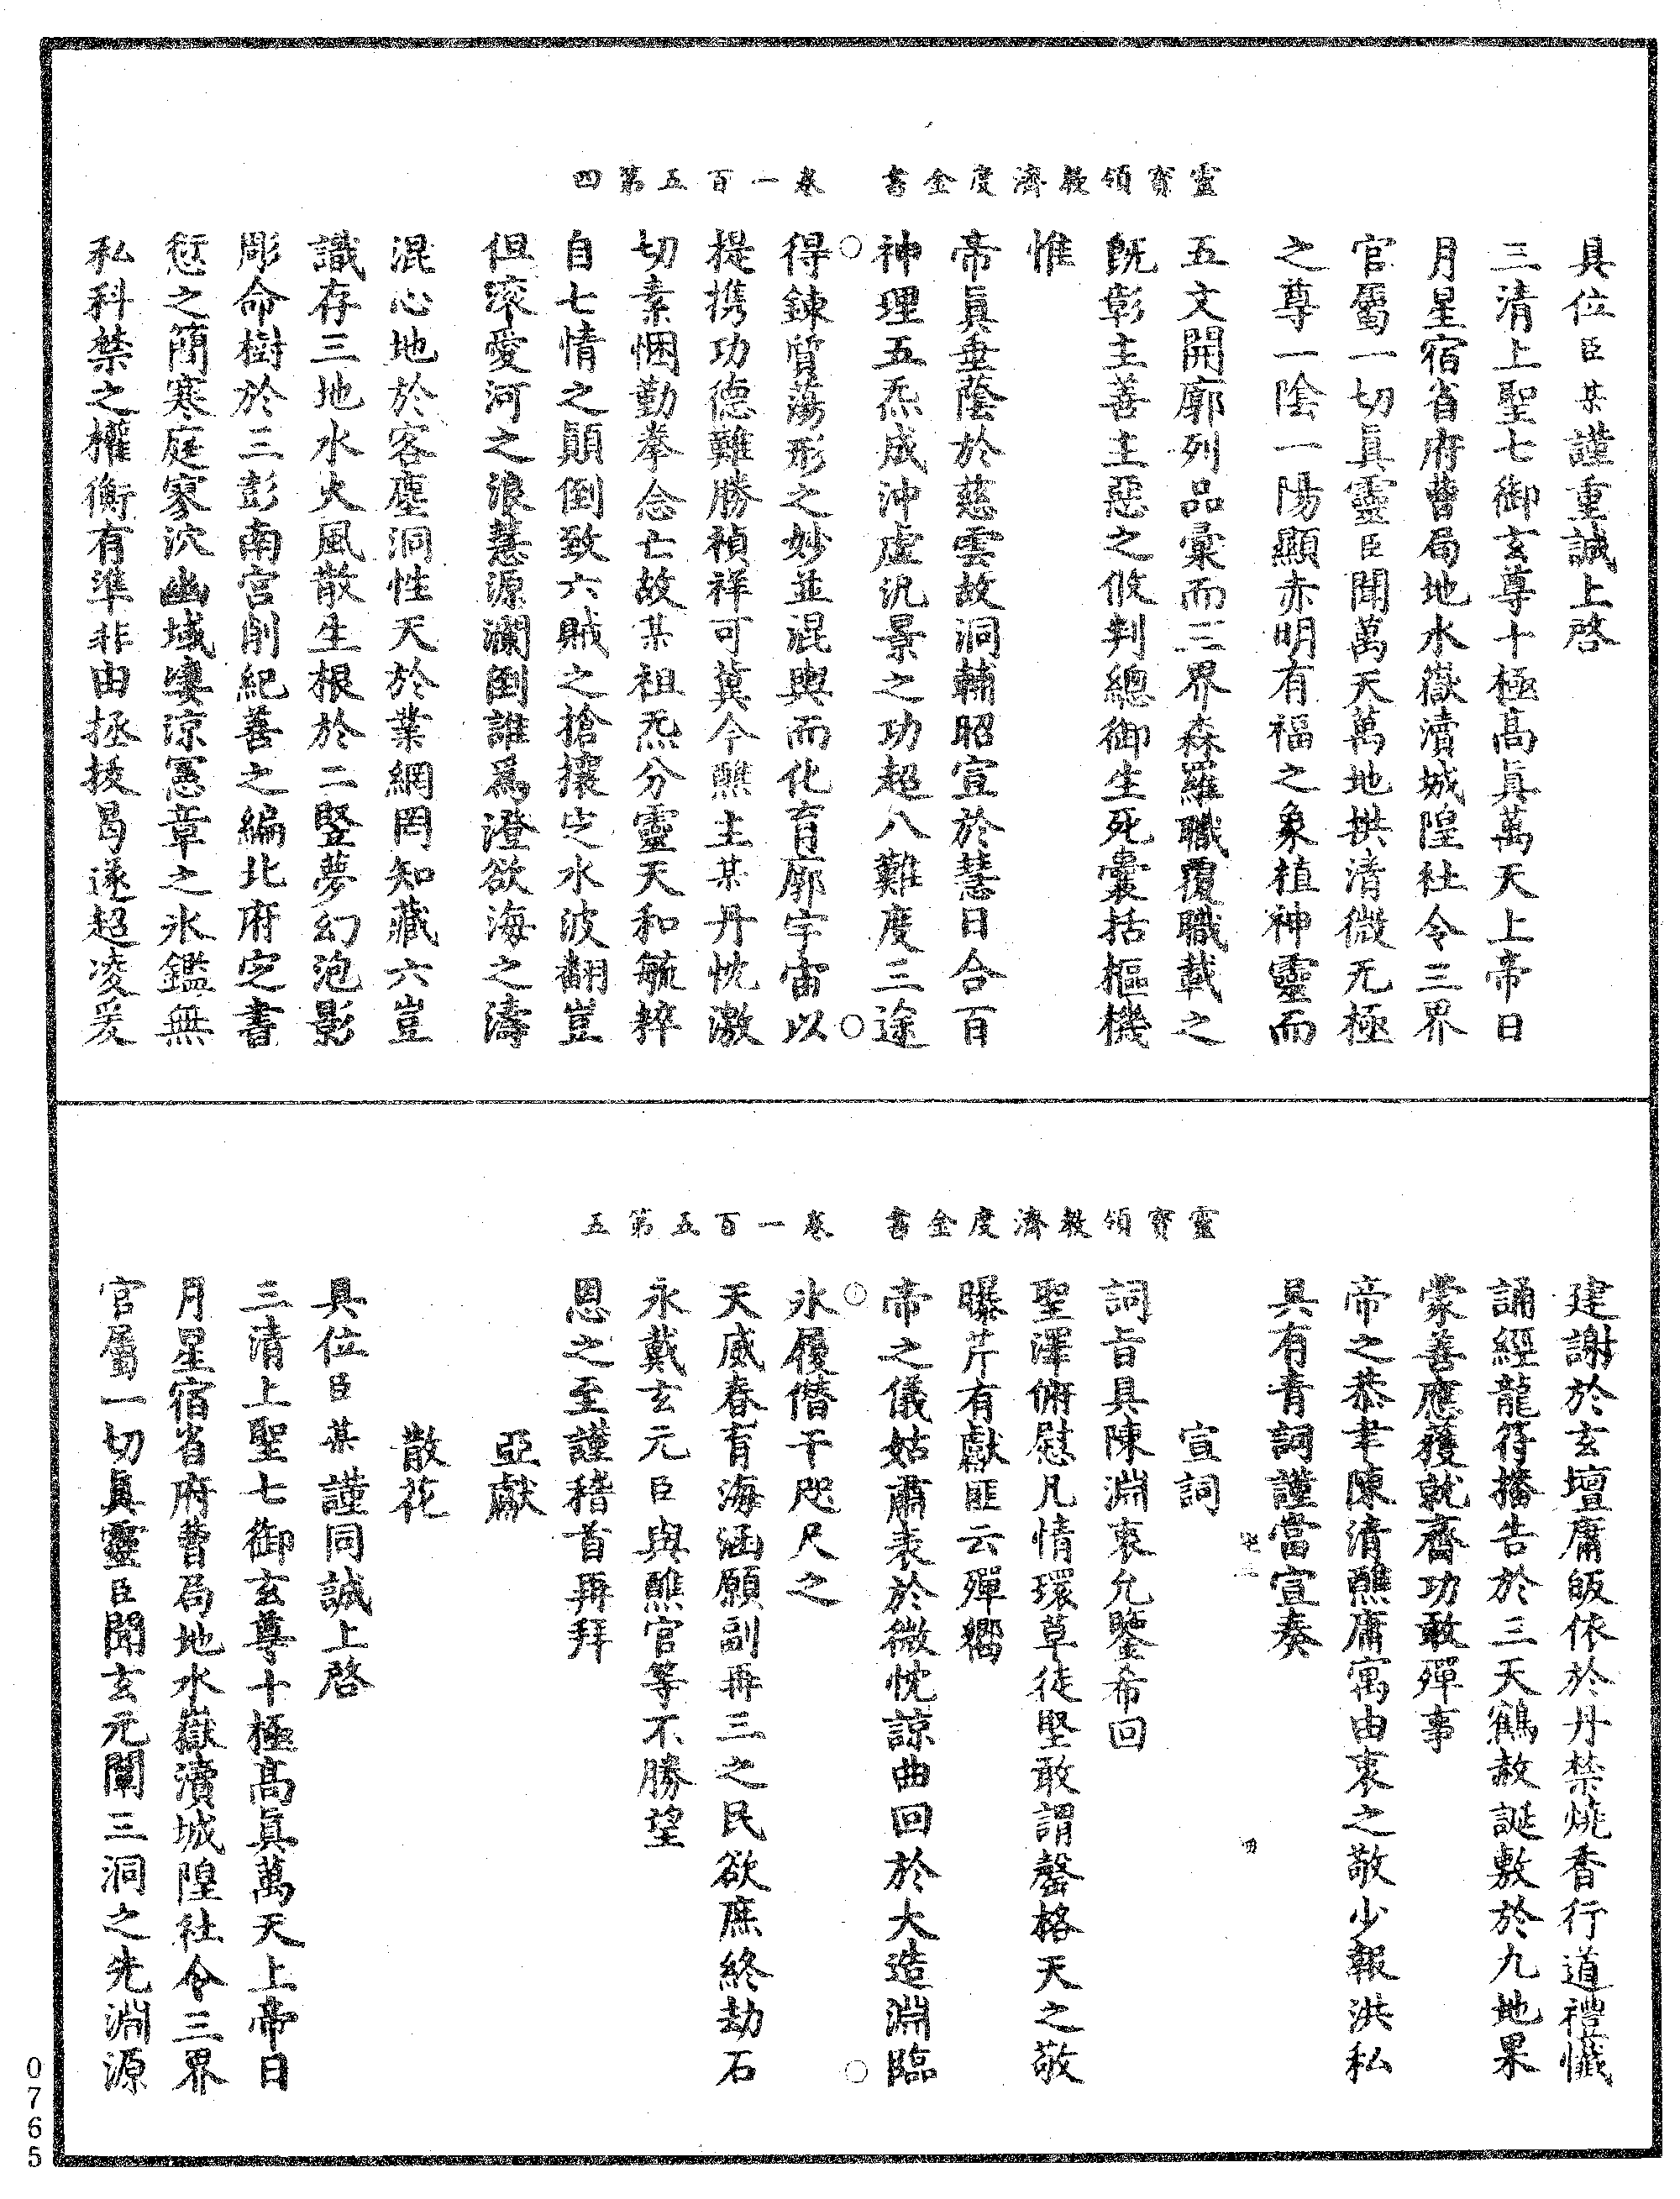 靈寶領教濟度金書 卷一百五第四
具位臣某謹重誠上啓
三清上聖七御玄尊十極高眞萬天上帝日
月星宿省府曹局地水嶽瀆城隍社令三界
官屬一切眞靈臣聞萬天萬地拱清微无極
之尊一陰一陽顯赤明有福之象植神靈而
五文開廓列品彙而三界森羅職覆職載之
旣彰主善主惡之攸判總御生死囊括樞機
惟
帝眞垂蔭於慈雲故洞輔昭宣於慧日合百
神理五炁成沖虛汎景之功超八難度三途
得鍊質蕩形之妙並混輿而化育廓宇宙以
提携功德難勝禎祥可冀今醮主某丹忱激
切素悃勤拳念亡故某祖炁分靈天和毓粹
自七情之顚倒致六賊之搶攘定水波翻豈
但滚愛河之浪慧源瀾倒誰爲澄欲海之濤
混心地於客塵洞性天於業網罔知藏六豈
識存三地水火風散生根於二竪夢幻泡影
彫命樹於三彭南宮削紀善之編北府定書
愆之簡寒庭寥泬幽域凄涼憲章之氷鑑無
私科禁之權衡有準非由拯拔曷遂超凌爰
靈寶領教濟度金書 卷一百五第五
建謝於玄壇庸皈依於丹禁燒香行道禮懺
誦經龍符播告於三天鶴赦誕敷於九地果
蒙善應獲就齋功敢殫事
帝之恭聿陳清醮庸寓由衷之敬少報洪私
具有青詞謹當宣奏
宣詞
詞旨具陳淵衷允鑒希回
聖澤俯慰凡情環草徒堅敢謂罄格天之敬
曝芹有獻匪云殫嚮
帝之儀姑肅表於微忱諒曲回於大造淵臨
氷履僭干咫尺之
天威春育海涵願副再三之民欲庶終劫石
永戴玄元臣與醮官等不勝望
恩之至謹稽首再拜
亞獻
散花
具位臣某謹同誠上啓
三清上聖七御玄尊十極高眞萬天上帝日
月星宿省府曹局地水嶽瀆城隍社令三界
官屬一切眞靈臣聞玄元闡三洞之先淵源
0765